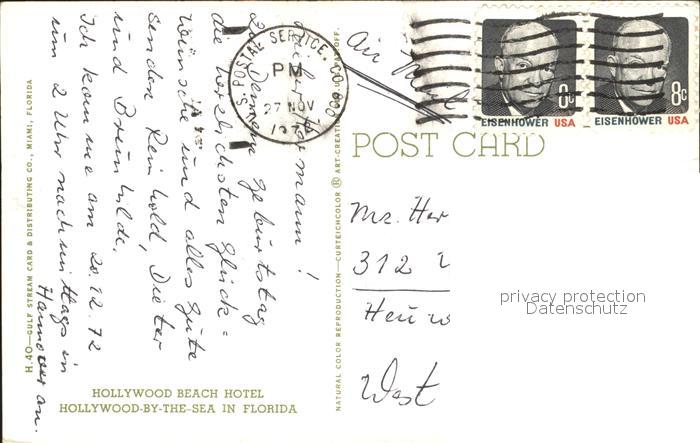 Air Mail
U.S. POSTAL SERVICE
PM
27 NOV
1972
8c
EISENHOWER USA
8c
EISENHOWER USA
POST CARD
Lieber Hermann!
Zu Deinem Geburtstag
die herzlichsten Glück=
wünsche und alles Gute
senden Reinhold, Dieter
und Brunhilde.
Ich komme am 20.12.72
um 2 Uhr nachmittags in
Hannover an.
Mr. Her
312
West
privacy protection
Datenschutz
HOLLYWOOD BEACH HOTEL
HOLLYWOOD-BY-THE-SEA IN FLORIDA
H.40—GULF STREAM CARD & DISTRIBUTING CO., MIAMI, FLORIDA
NATURAL COLOR REPRODUCTION—CURTEICHCOLOR ® ART-CREATION